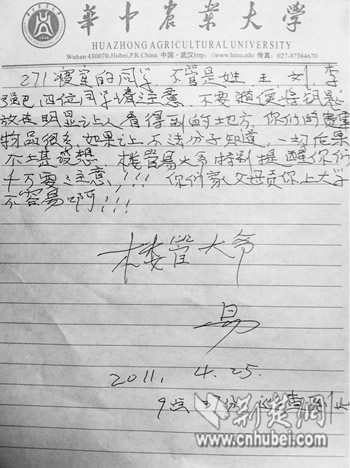 華中农业大学
HUAZHONG AGRICULTURAL UNIVERSITY
Wuhan 430070.Hubei,P.R.China 中国·武汉 http://www.hzau.edu.cn 027-87384670
271寝室的同学 不管是姓 王 刘 李
四位同学请注意、不要随便将钥匙
放在明显让人看得到的地方,你们的贵重
物品很多,如果让不法分子知道,一切后果
不堪设想.楼管易大爷特别提醒你们
千万要注意!!!你们家父母贡你上大学
不容易啊!!!
楼管大爷
易
2011. 4.25.
9点
新楚网
www.cnhubei.com